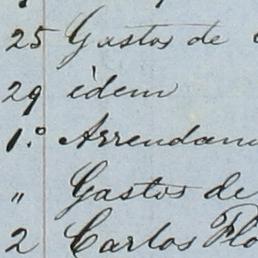 25 Gastos de
29 idem
1.º Arrendam
" Gastos de
2 Carlos Flo